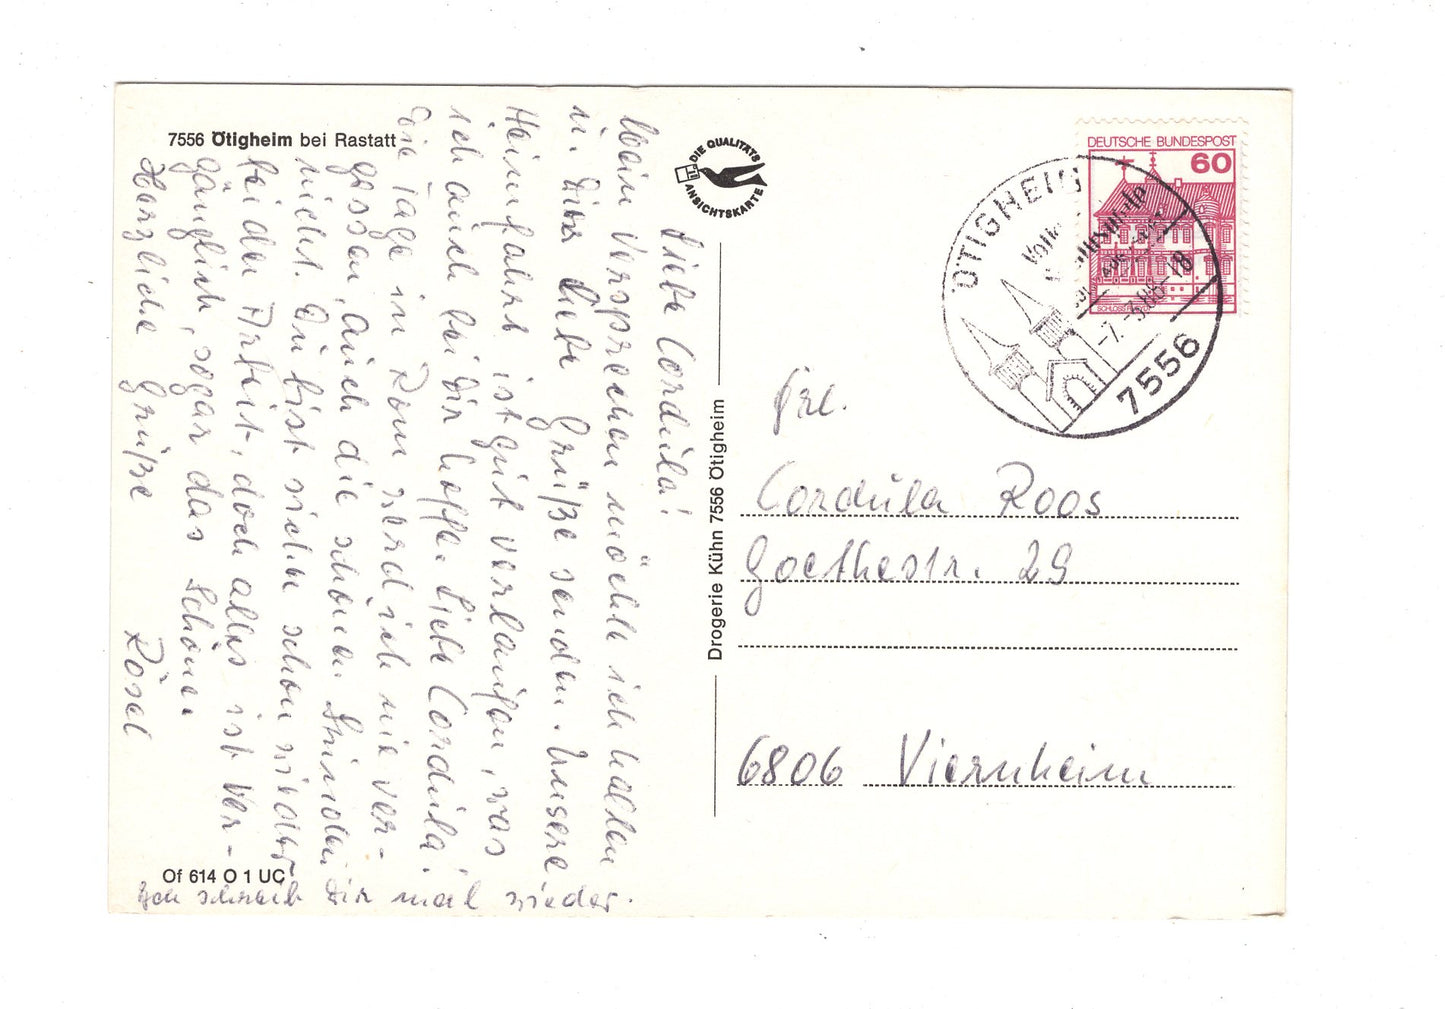 7556 Ötigheim bei Rastatt
DIE QUALITÄTS
ANSICHTSKARTE
Liebe Cordula!
Mein Versprechen möchte ich halten
u. Dir liebe Grüße senden. Unsere
Heimfahrt ist gut verlaufen, was
ich auch bei Dir hoffe. Liebe Cordula!
Die Tage in Rom werd ich nie ver-
gessen, auch die schönen Stunden
nicht. Du bist sicher schon wieder
bei der Arbeit, doch alles ist ver-
gänglich, sogar das Schöne.
Herzliche Grüße Rösel
Ich schreib Dir mal wieder.
Of 614 O 1 UC
Drogerie Kühn 7556 Ötigheim
DEUTSCHE BUNDESPOST
60
SCHLOSS
ÖTIGHEIM
-7.-3.88-18
7556
Frl.
Cordula Roos
Goethestr. 29
6806 Viernheim